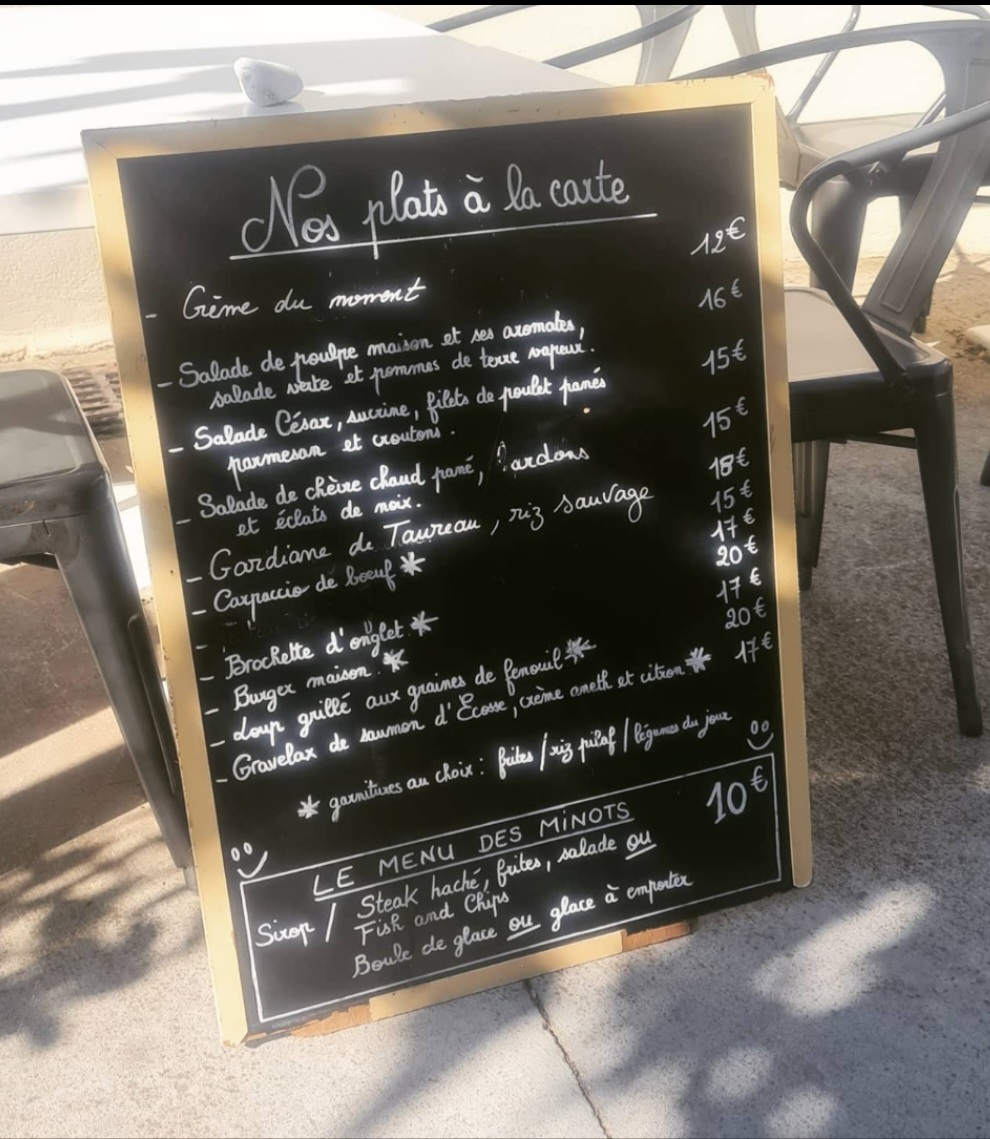 Nos plats à la carte
- Crème du moment 12€
- Salade de poulpe maison et ses aromates, 16€
salade verte et pommes de terre vapeur.
- Salade César, sucrine, filets de poulet panés 15€
parmesan et croutons.
- Salade de chèvre chaud pané, lardons 15€
et éclats de noix.
- Gardiane de Taureau, riz sauvage 18€
- Carpaccio de boeuf * 15€
- 17€
- Brochette d'onglet * 20€
- Burger maison * 17€
- Loup grillé aux graines de fenouil * 20€
- Gravelax de saumon d'Écosse, crème aneth et citron * 17€
* garnitures au choix : frites / riz pilaf / légumes du jour
LE MENU DES MiNOTS 10€
Sirop / Steak haché, frites, salade ou
Fish and Chips
Boule de glace ou glace à emporter